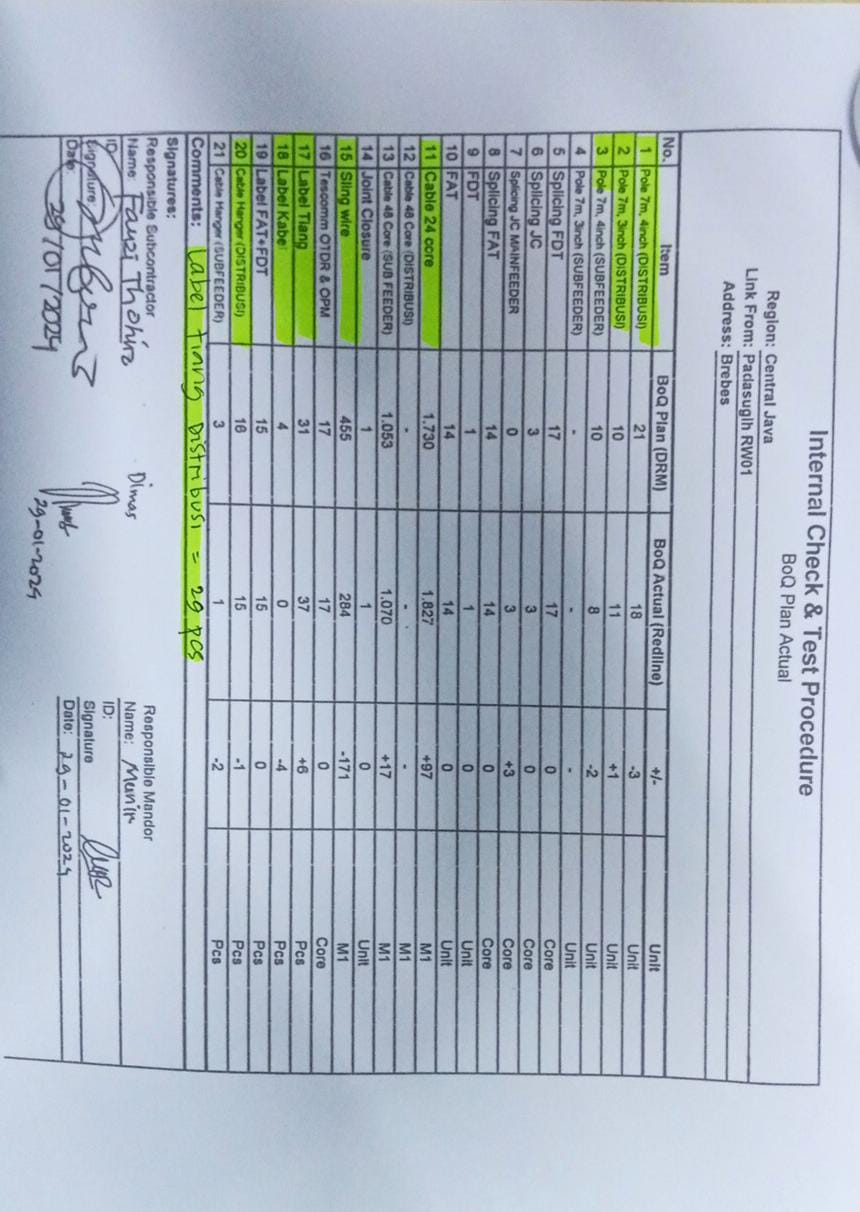 Internal Check & Test Procedure
BoQ Plan Actual
Region: Central Java
Link From: Padasugih RW01
Address: Brebes
No. Item BoQ Plan (DRM) BoQ Actual (Redline) +/- Unit
1 Pole 7m, 4inch (DISTRIBUSI) 21 18 -3 Unit
2 Pole 7m, 3inch (DISTRIBUSI) 10 11 +1 Unit
3 Pole 7m, 4inch (SUBFEEDER) 10 8 -2 Unit
4 Pole 7m, 3inch (SUBFEEDER) - - - Unit
5 Splicing FDT 17 17 0 Core
6 Splicing JC 3 3 0 Core
7 Splicing JC MAINFEEDER 0 3 +3 Core
8 Splicing FAT 14 14 0 Core
9 FDT 1 1 0 Unit
10 FAT 14 14 0 Unit
11 Cable 24 core 1.730 1.827 +97 M1
12 Cable 48 Core (DISTRIBUSI) - - - M1
13 Cable 48 Core (SUB FEEDER) 1.053 1.070 +17 M1
14 Joint Closure 1 1 0 Unit
15 Sling wire 455 284 -171 M1
16 Tescomm OTDR & OPM 17 17 0 Core
17 Label Tiang 31 37 +6 Pcs
18 Label Kabel 4 0 -4 Pcs
19 Label FAT+FDT 15 15 0 Pcs
20 Cable Hanger (DISTRIBUSI) 16 15 -1 Pcs
21 Cable Hanger (SUBFEEDER) 3 1 -2 Pcs
Comments: Label Tiang Distribusi = 29 pcs
Signatures:
Responsible Subcontractor Responsible Mandor
Name: Fauzi Thohiro Dimas Name: Munir
ID: ID:
Signature Signature
Date: 29/01/2024 29-01-2024 Date: 29-01-2024